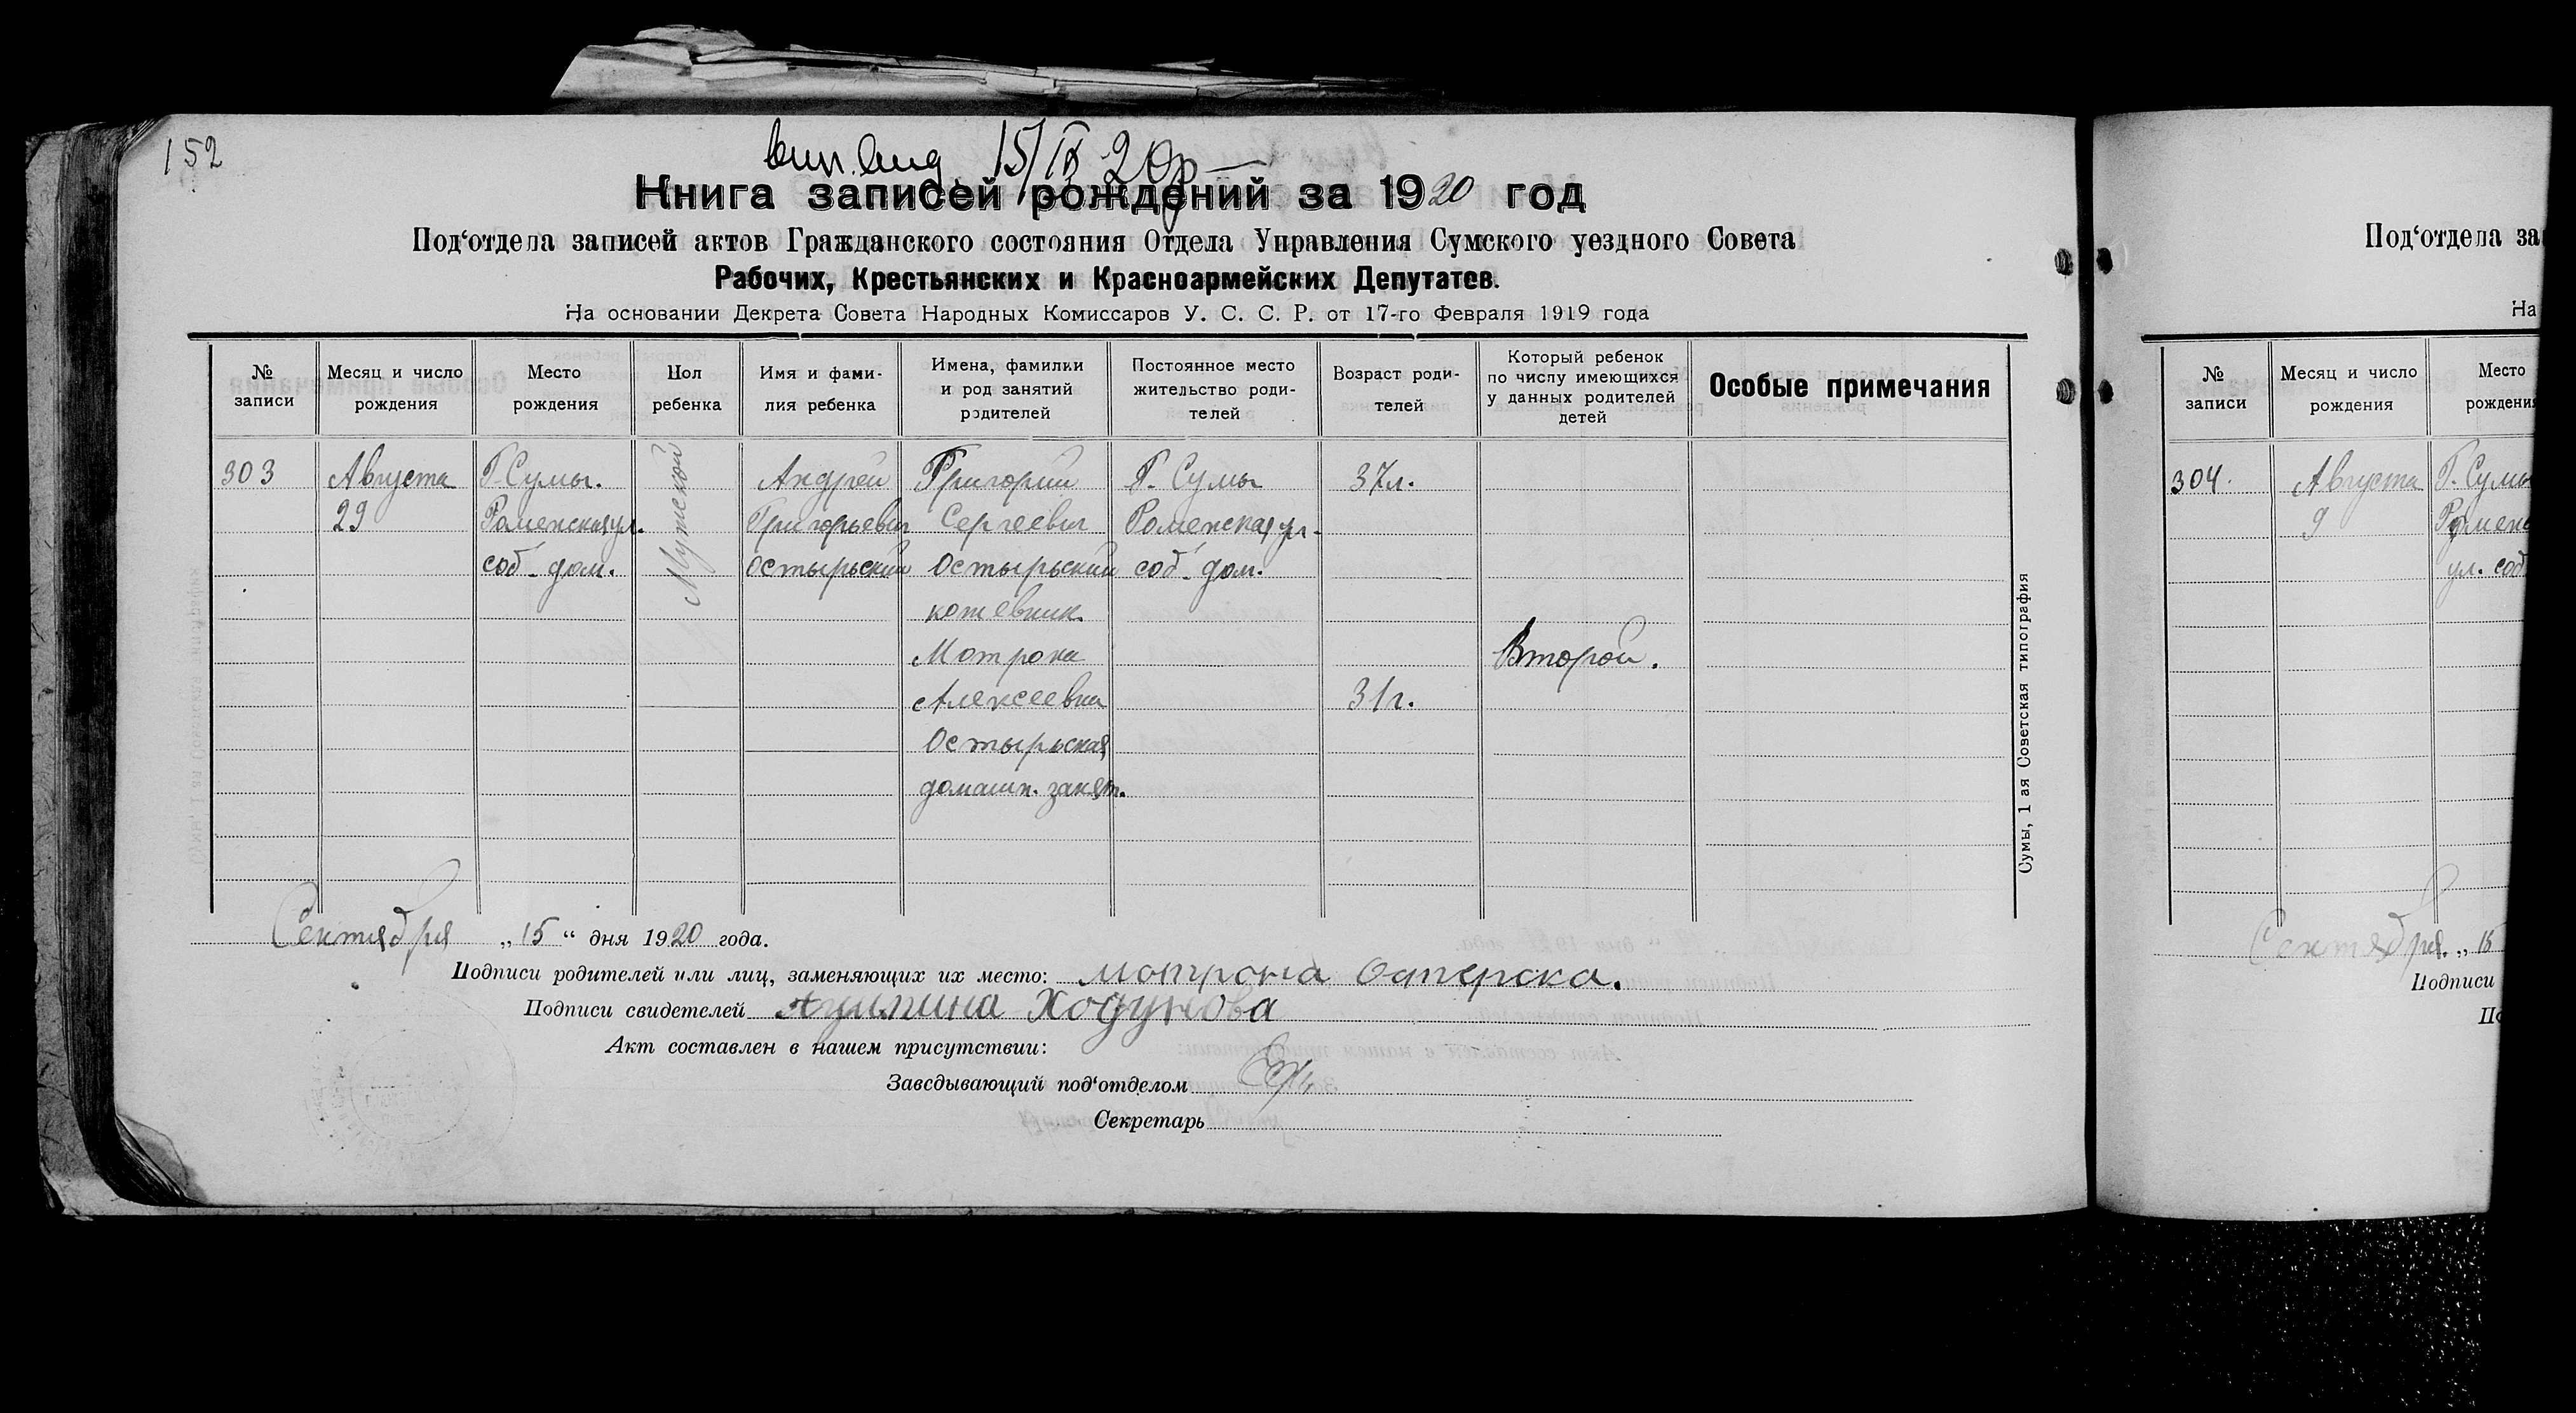 152
15/IX 20р
Книга записей рождений за 1920 год
Под‘отдела записей актов Гражданского состояния Отдела Управления Сумского уездного Совета
Рабочих, Крестьянских и Красноармейских Депутатев.
На основании Декрета Совета Народных Комиссаров У. С. С. Р. от 17-го Февраля 1919 года
№ записи
Месяц и число рождения
Место рождения
Пол ребенка
Имя и фами-
лия ребенка
Имена, фамилии
и род занятий
родителей
Постоянное место
жительство роди-
телей
Возраст роди-
телей
Который ребенок
по числу имеющихся
у данных родителей
детей
Особые примечания
303
Августа
29
Г. Сумы.
Роменская ул.
соб. дом.
Мужской
Андрей
Григорьевич
Остырьский
Григорий
Сергеевич
Остырьский
котевник.
Мотрона
Алексеевна
Остырьская
домашн. занят.
Г. Сумы
Роменская ул.
соб. дом.
37л.
31г.
Второй.
Сентября „15“ дня 1920 года.
Подписи родителей или лиц, заменяющих их место: Мотрона Остерска.
Подписи свидетелей Акулина Ходунова
Акт составлен в нашем присутствии:
Заведывающий под‘отделом
Секретарь
Сумы, 1 ая Советская типография
Под‘отдела за
На
№ записи
Месяц и число рождения
Место рождения
304.
Августа
9
Г. Сумы
Роменс
ул. соб
Сентября „15
Подписи
По